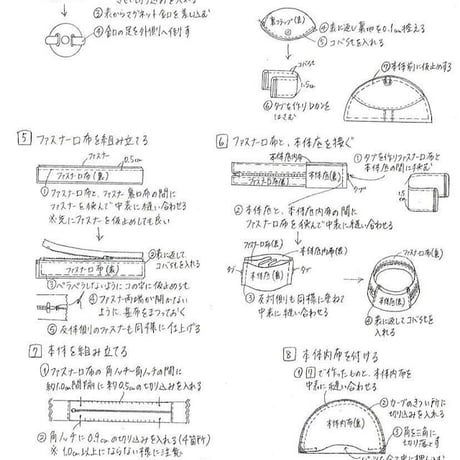 ②表からマグネット金口を差し込む
④金口の足を外側へ倒す
裏フラップ(表)
④表に返し裏地を0.1cm控える
⑤コバstを入れる
コバst
1.5cm
⑥タブを作りDカンを
はさむ
⑦本体前に仮止めする
5 ファスナー口布を組み立てる
ファスナー
0.5cm
ファスナー口布(裏)
①ファスナー口布と、ファスナー裏口布の間に
ファスナーを挟んで中表に縫い合わせる
※先にファスナーを仮止めしても良い
②表に返して
コバstを入れる
ファスナー口布(表)
③ペラペラしないようにコの字に仮止めする
④ファスナー両端が開かない
ように、基布をまつっておく
⑤反対側のファスナーも同様に仕上げる
6 ファスナー口布と、本体底を接ぐ
本体底内布
本体底(裏)
ファスナー口布(表)
タブ
①タブを作りファスナー口布と
本体底の間に挟む
1.5cm
②本体底と、本体底内布の間に
ファスナー口布を挟んで中表に縫い合わせる
ファスナー口布(表)
本体底内布(裏)
タブ
本体底(裏)
タブ
③反対側も同様に重ねて
中表に縫い合わせる
ファスナー口布(表)
本体底(表)
④表に返してコバstを
入れる
7 本体を組み立てる
①ファスナー口布の角ノッチ〜角ノッチの間に
約1.0cm間隔に約0.5cmの切り込みを入れる
②角ノッチに0.9cmの切り込みを入れる(4箇所)
※1.0cm以上にならない様に注意
8 本体内布を付ける
①7で作ったものと、本体内布を
中表に縫い合わせる
本体内布(裏)
②カーブのきつい所に
切り込みを入れる
③角を三角に
切り落とす